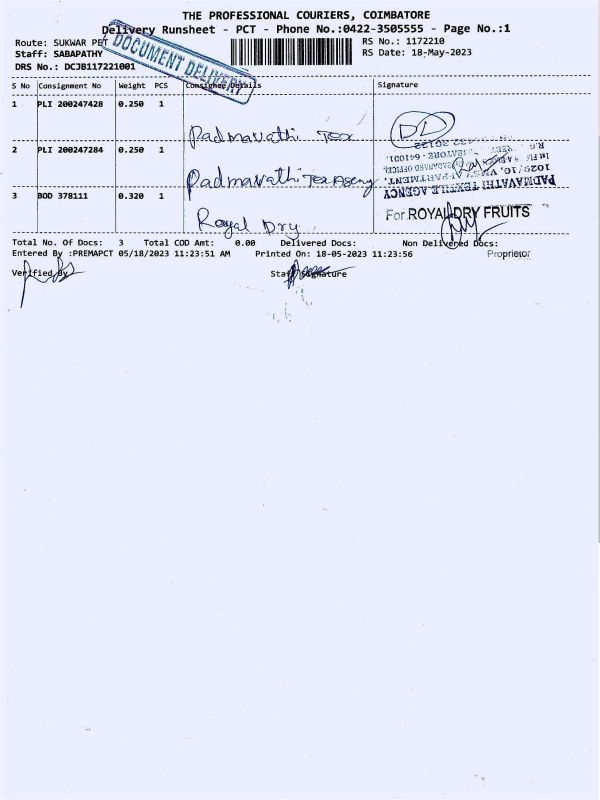 THE PROFESSIONAL COURIERS, COIMBATORE
Delivery Runsheet - PCT - Phone No.:0422-3505555 - Page No.:1
Route: SUKWAR PET
RS No.: 1172210
Staff: SABAPATHY
RS Date: 18-May-2023
DRS No.: DCJB117221001
DOCUMENT DELIVERY
S No Consignment No Weight PCS Consignee Details Signature
1 PLI 200247428 0.250 1
Padmavathi Tex
DD
2 PLI 200247284 0.250 1
Padmavathi Tex Agency
PADMAVATHI TEXTILE AGENCY
1025/10, VMS APARTMENT,
1st FLOOR
3 BOD 378111 0.320 1
Royal Dry
For ROYAL DRY FRUITS
Proprietor
Total No. Of Docs: 3 Total COD Amt: 0.00 Delivered Docs: Non Delivered Docs:
Entered By :PREMAPCT 05/18/2023 11:23:51 AM Printed On: 18-05-2023 11:23:56
Verified By
Staff Signature